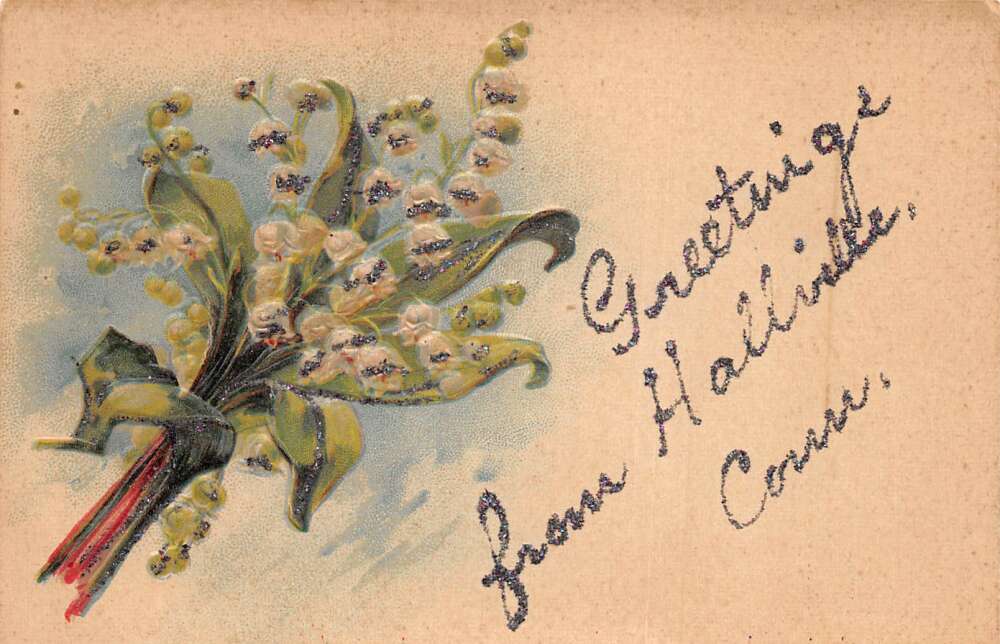 Greetings
from Hallville.
Conn.